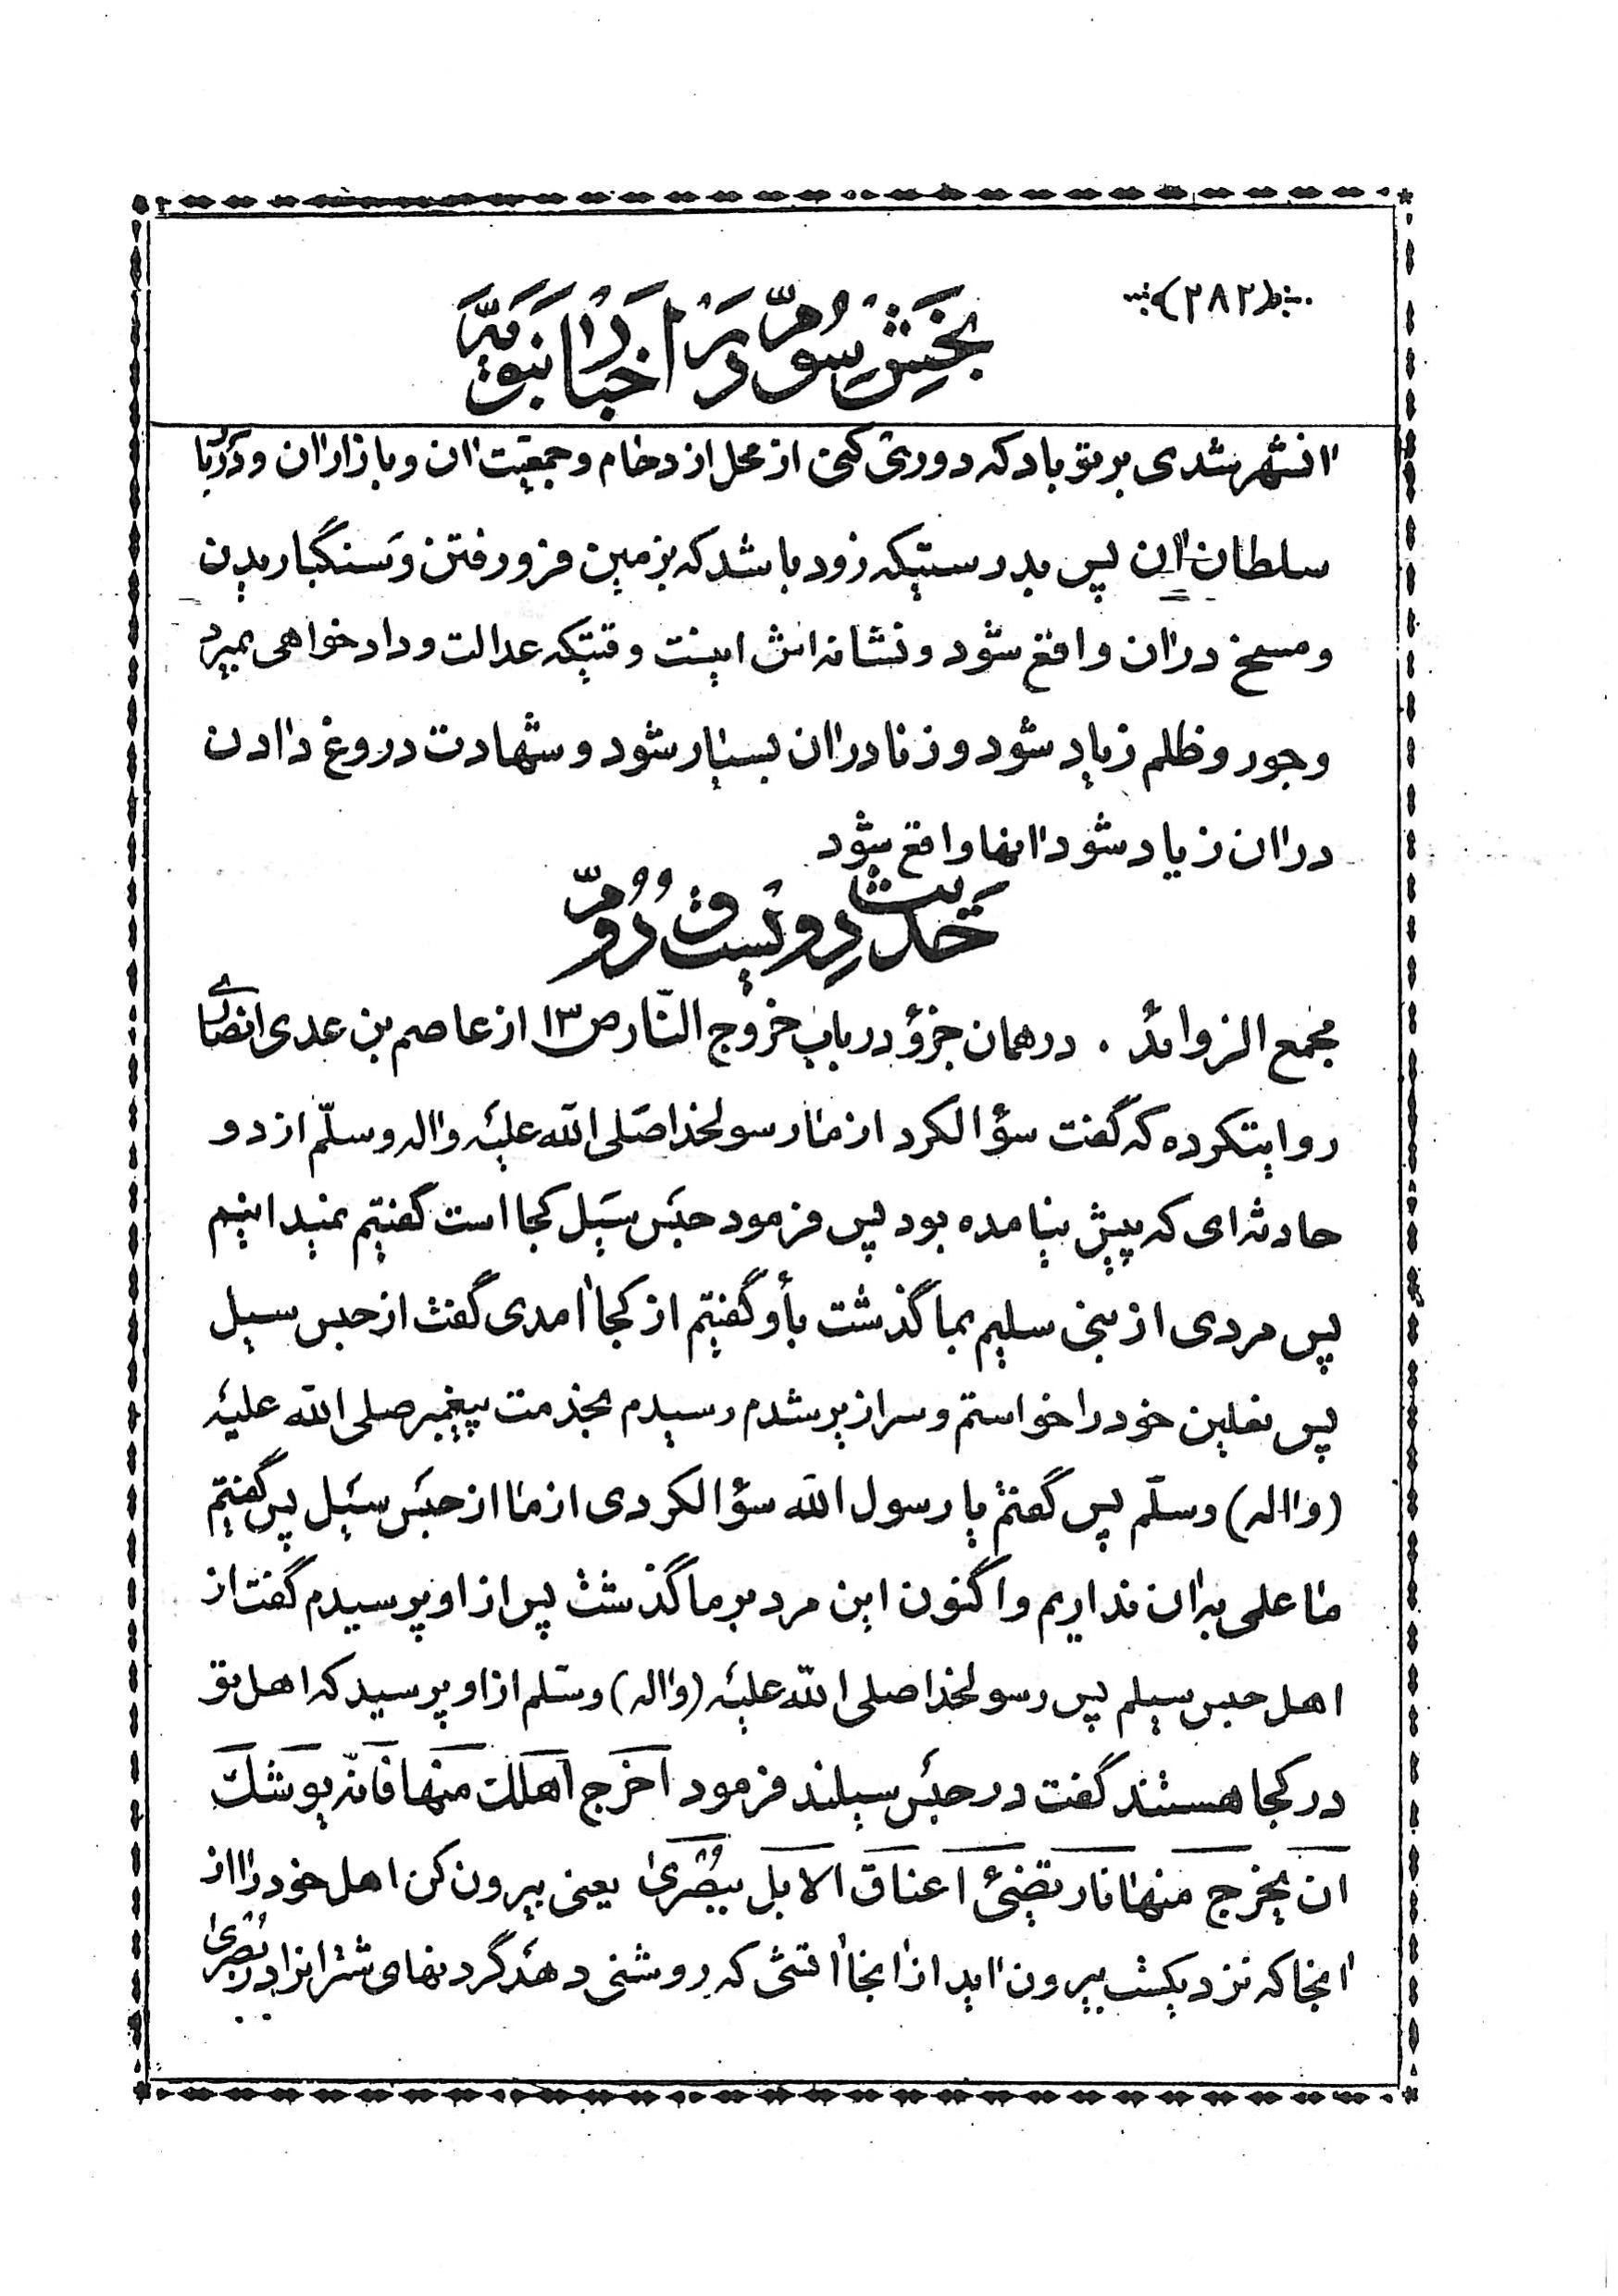 (۲۸۲)
بخش سوم در اخبار نبویه
انشهر شدی بر تو باد که دوری کنی از محل ازدحام و جمعیت ان و بازار ان و دربا
سلطان ان پس بدرستیکه زود باشد که بزمین فرو رفتن و سنگباریدن
و مسخ در ان واقع شود و نشانه اش اینست وقتیکه عدالت و دادخواهی بمیرد
و جور و ظلم زیاد شود و زنا در ان بسیار شود و شهادت دروغ دادن
در ان زیاد شود اانها واقع شود
حدیث دویست و دوم
مجمع الزوائد . در همان جزؤ در باب خروج النار ص ۱۳ از عاصم بن عدی انصاری
روایتکرده که گفت سؤالکرد از ما رسولخدا صلی الله علیه واله وسلم از دو
حادثه ای که پیش نیامده بود پس فرمود حبس سیل کجا است گفتیم نمیدانیم
پس مردی از بنی سلیم بما گذشت بأو گفتیم از کجا امدی گفت از حبس سیل
پس نعلین خود را خواستم و سرازیر شدم رسیدم بخدمت پیغمبر صلی الله علیه
(واله) وسلم پس گفتم یا رسول الله سؤالکردی از ما از حبس سیل پس گفتیم
ما علمی به ان نداریم و اکنون این مرد بر ما گذشت پس از او پرسیدم گفت از
اهل حبس سیلم پس رسولخدا صلی الله علیه (واله) وسلم از او پرسید که اهل تو
در کجا هستند گفت در حبس سیلند فرمود اَخرج اَهلک منها فَانّه یوشک
ان یخرج منها نار تضیئ اَعناق الابل ببُصریٰ یعنی بیرون کن اهل خود را از
انجا که نزدیکست بیرون اید از انجا اتشی که روشنی دهد گردنهای شتران را در بُصریٰ